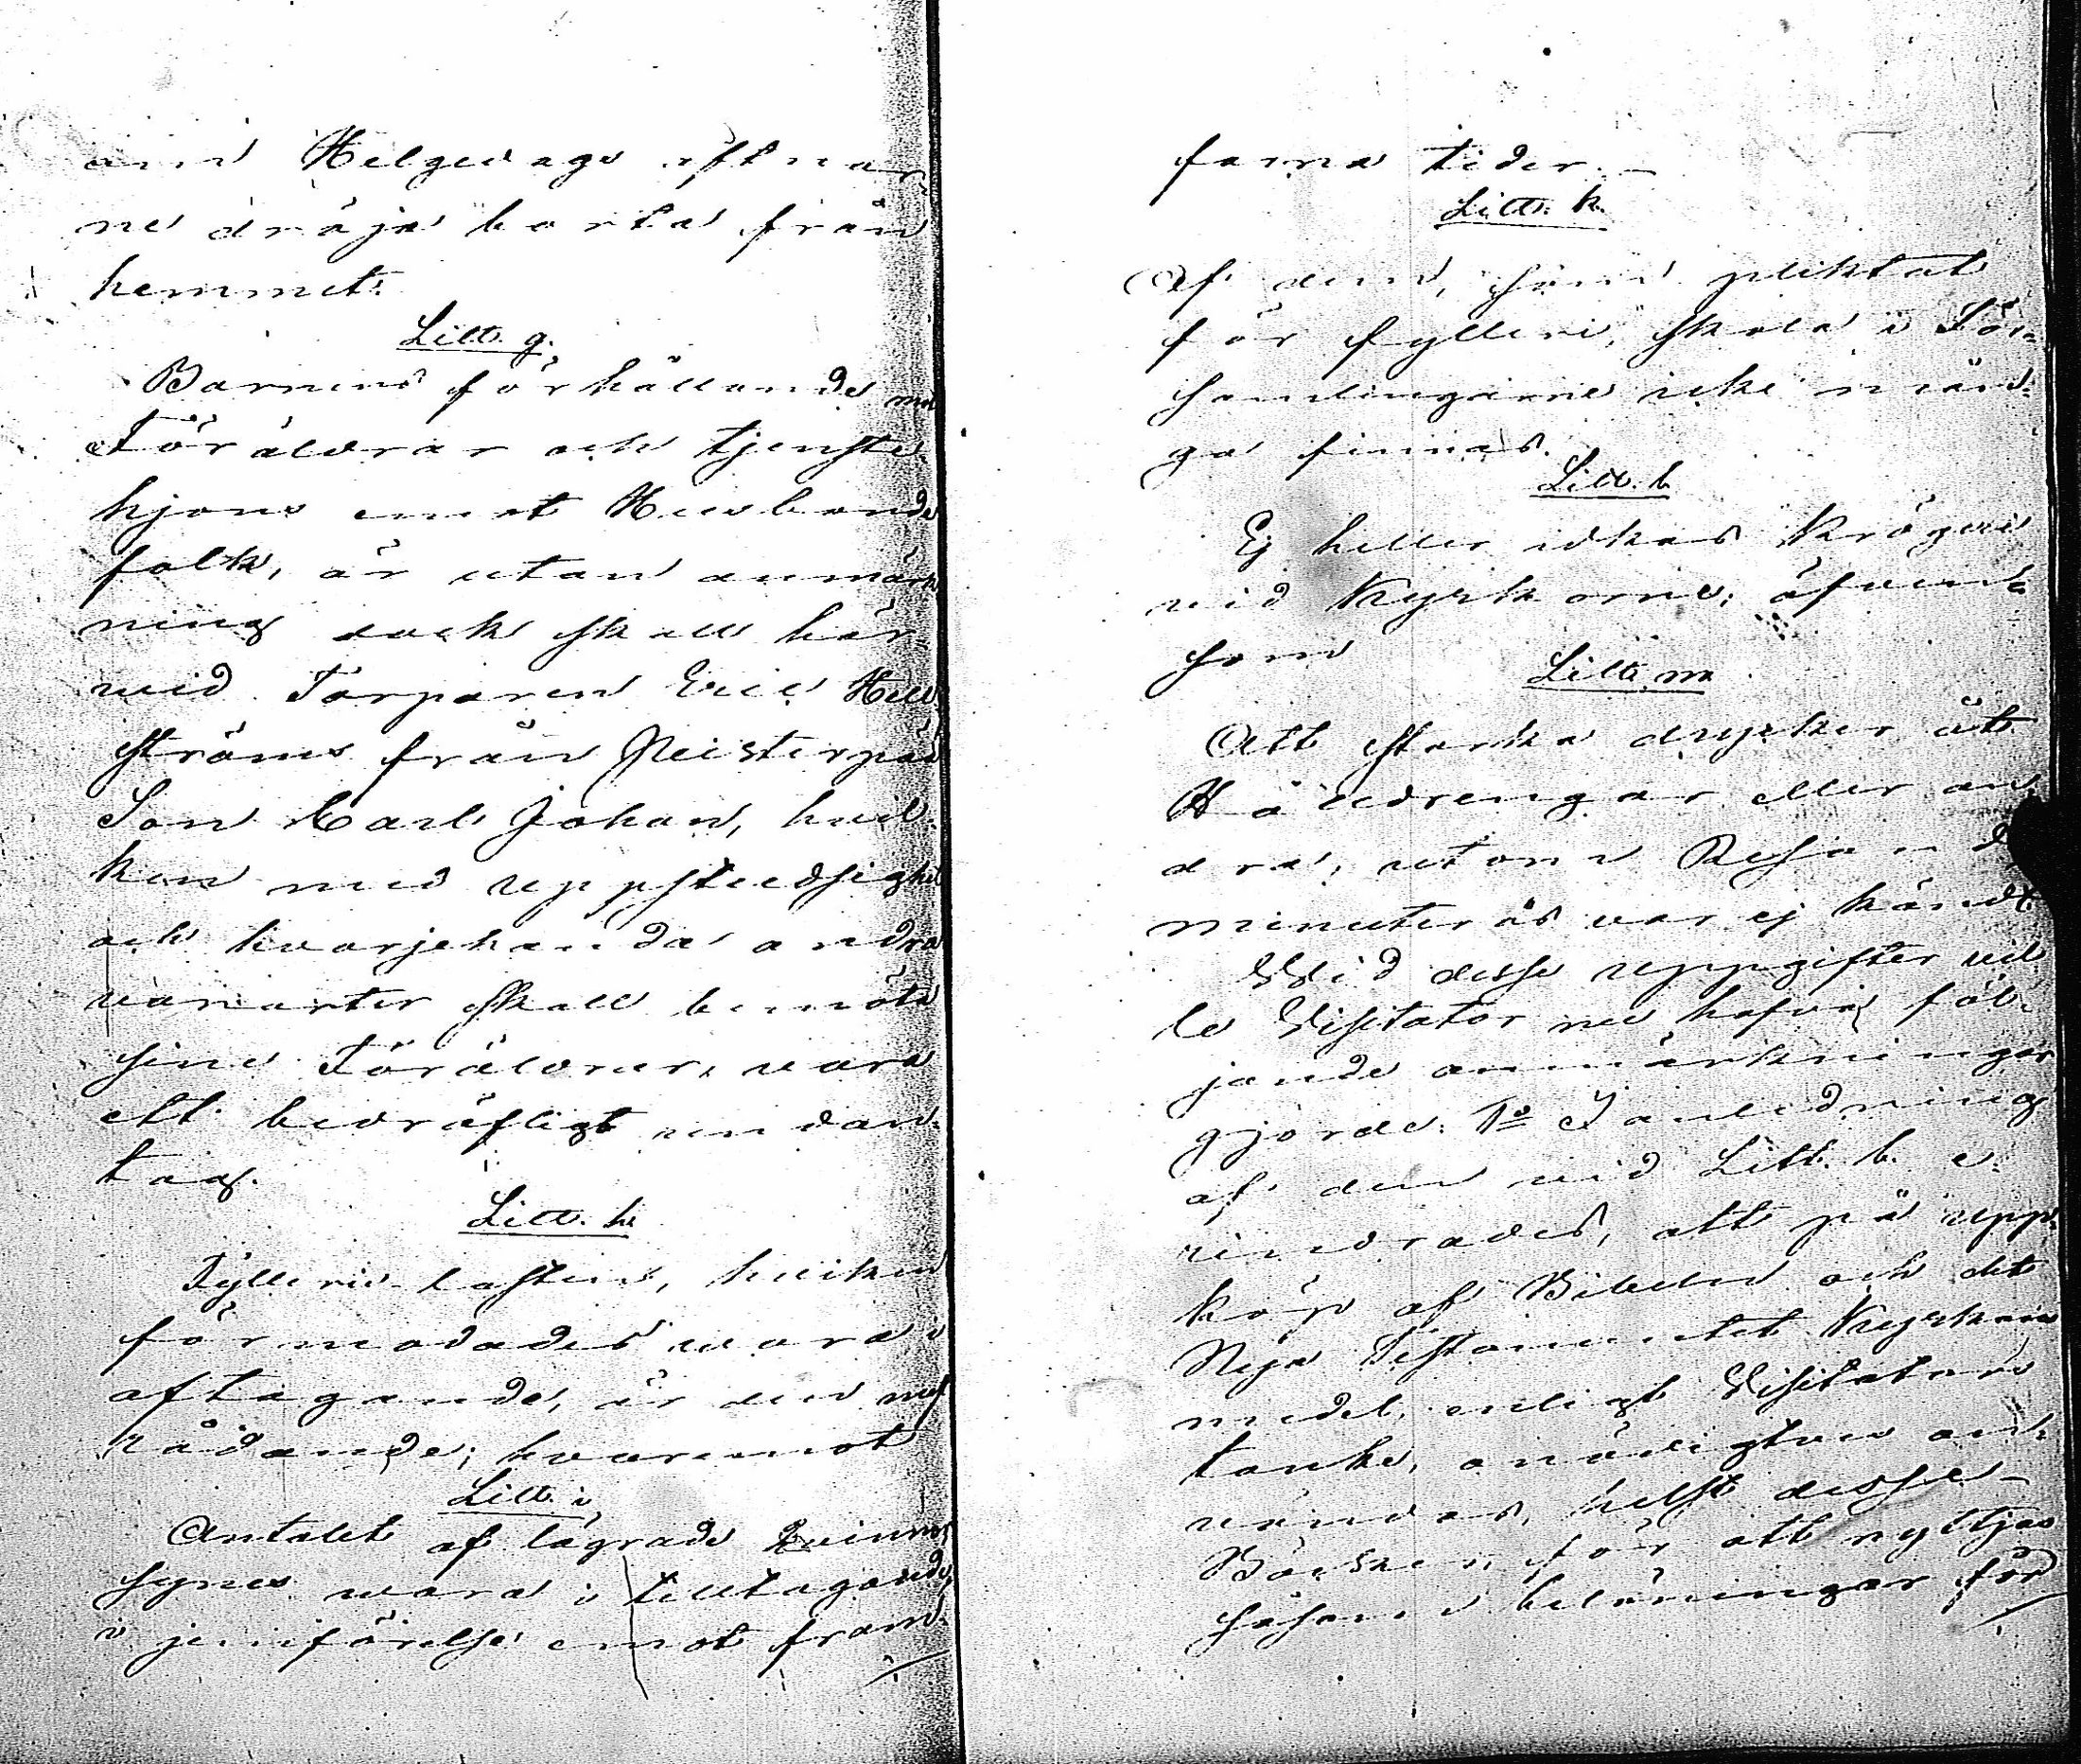 om Helgedags aftnar¬
ne dröja borta från
hemmet.
Litt. g.
Barnens förhållande mot
Föräldrar och tjenste
hjons emot Husbonde
folk, är utan anmärk
ning dock skall här¬
vid Torparen Eric Hell
ströms från Neisterpad
Son Carl Johan, hvil¬
ken med uppstudsighet
och hvarjehanda andra
vanarter skall bemöta
sine Föräldrar, vara
ett bedröfligt undan¬
tag.
Litt. h.
Fylleri-lasten, hvilken
förmodades vara i
aftagande, är den mest
rådande; hvaremot
Litt. i.
Antalet af lägrade Qvinnor
synes vara i tilltagande,
i jemförelse emot fram¬
farna tider. –
Litt. k.
Af dem, som pliktat
för fylleri, skola i För¬
samlingarne icke mån¬
ga finnas.
Litt. l.
Ej heller idkas krögeri
vid Kyrkorne; äfven¬
som
Litt. m.
Att starka drycker åt
Hälldrengar eller an¬
dra, utom Resande
minuteras var ej kändt.
Wid desse uppgifter vil
le Visitator nu hafva föl¬
jande anmärkningar
gjorde: 1º I anledning
af den vid Litt. b. e¬
rindrades, att på upp¬
köp af Bibeln och det
Nya Testamentet Kyrkans
medel, enligt Visitators
tanke, onödigtvis an¬
vändas, helst desse
Böcker, för att nyttjas
såsom belöningar för